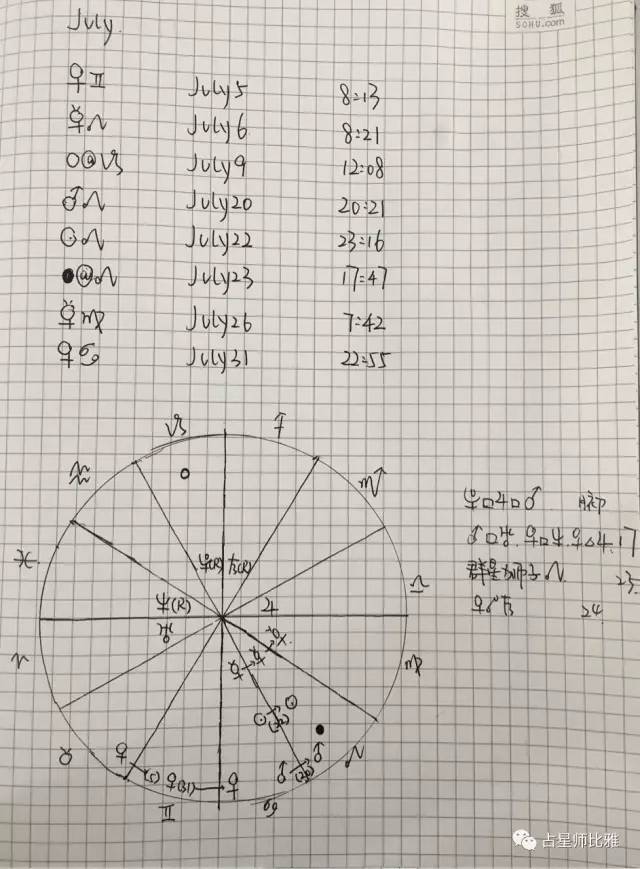 搜狐
SOHU.com
July
♀ ♊ July 5 8:13
☿ ♌ July 6 8:21
○@♑ July 9 12:08
♂ ♌ July 20 20:21
☉ ♌ July 22 23:16
●@♌ July 23 17:47
☿ ♍ July 26 7:42
♀ ♋ July 31 22:55
♑ ♐
♒ ♏
♓ ♎
♈ ♍
♉ ♌
♊ ♋
(R) (R)
♆(R) ♃
♅
☿ ☿
☉ ☉
(22)
♀ (5) ♀(31) ♀
♂ (20) ♂
□♃□♂
♂□♅ ♀□♆ ♀△♃ 17
群星狮子♌ 23
♀☍ 24
占星师比雅